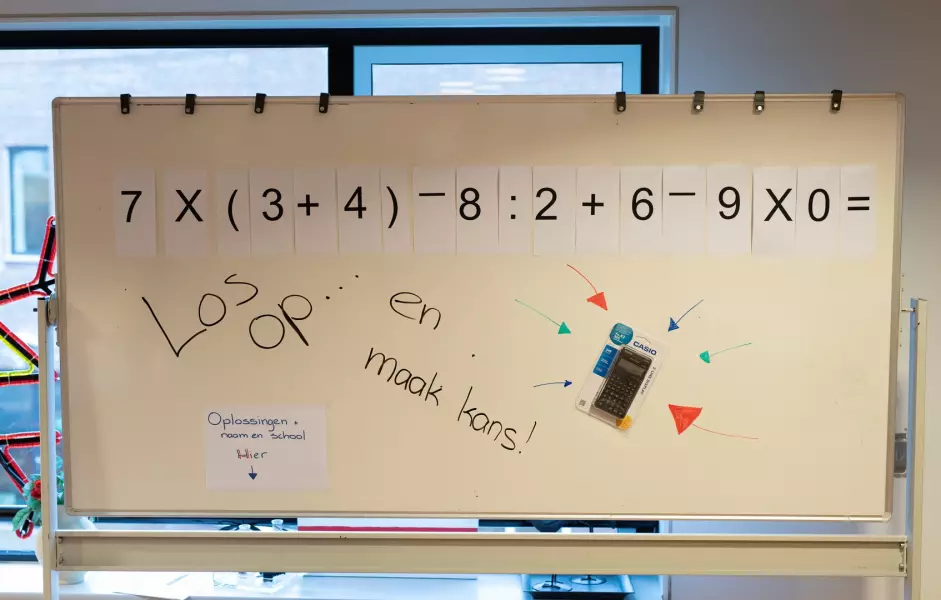 7 X ( 3 + 4 ) − 8 : 2 + 6 − 9 X 0 =
Los op... en
maak kans!
CASIO
Oplossingen +
naam en school
Hier